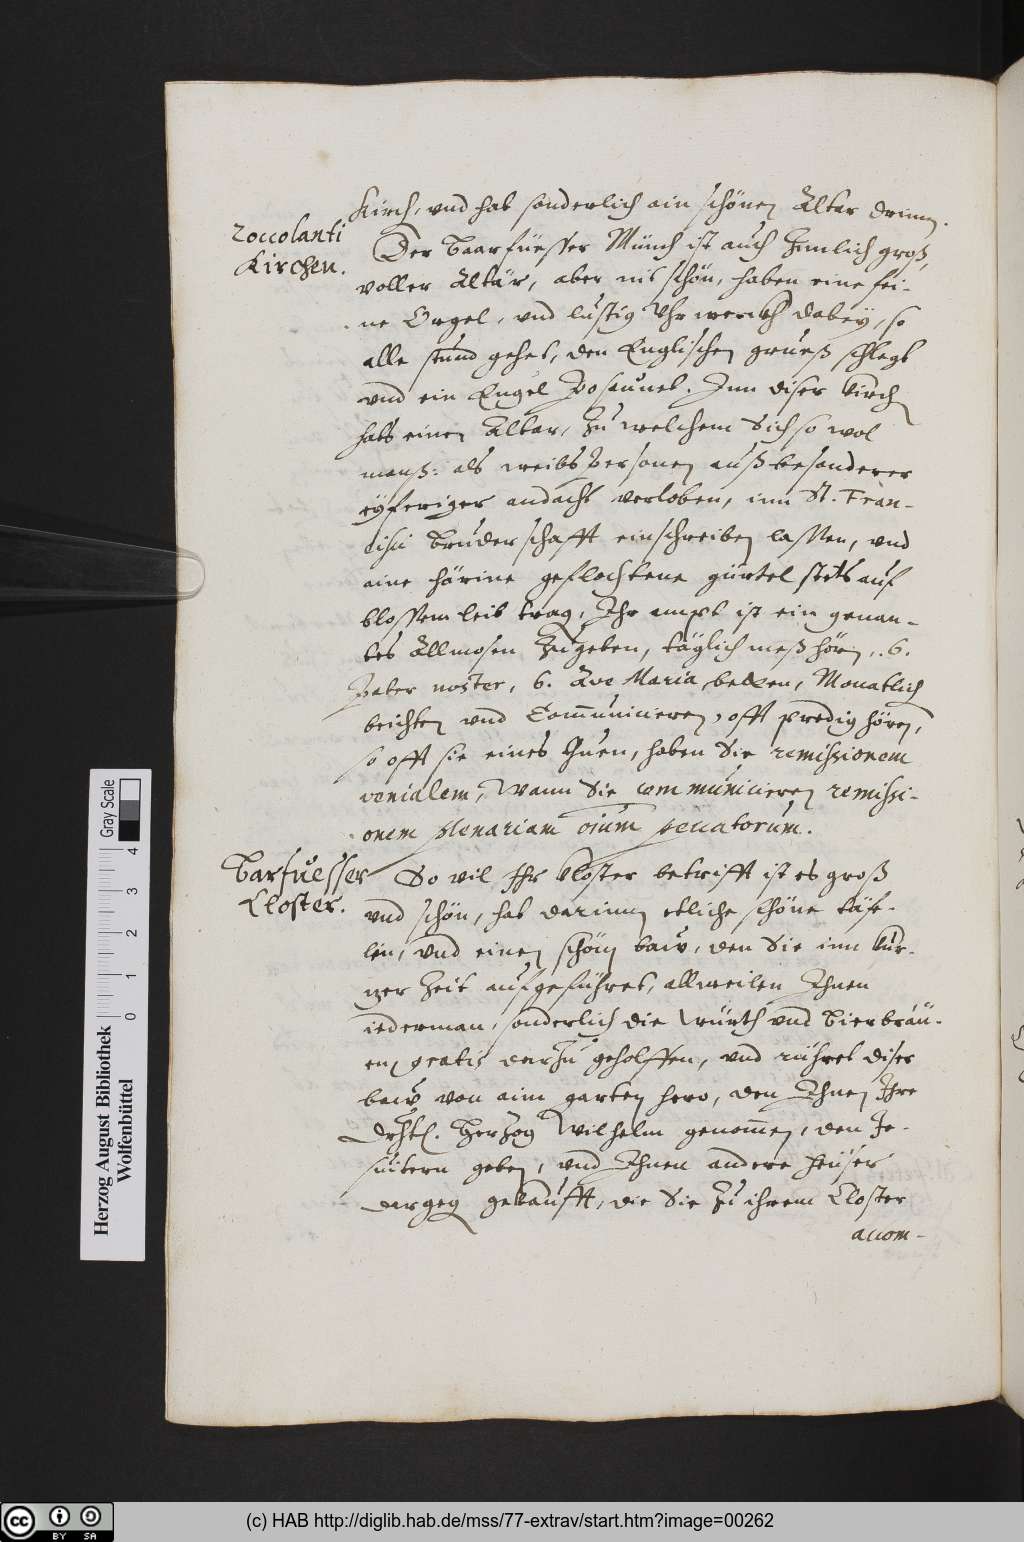 Kirch, vnd hat sonderlich ain schönen Altar drinn.
Zoccolanti
Kirchen.
Der Baarfüesser Münch ist auch zimlich groß,
voller Altär, aber nit schön, haben eine fei-
ne Orgel, vnd lustig Vhrwerckh dabey, so
alle stund gehet, den Englischen grueß schlegt
vnd ein Engel Posaunet. Inn diser kirch
hats einen Altar, zu welchem Sich so wol
manß: als weibs Personen auß besonderer
eyferiger andacht verloben, inn St. Fran-
cisci Bruderschafft einschreiben lassen, vnd
aine härine geflochtene gürtel stets auf
blossem leib trag, Ihr ampt ist ein genan-
tes Allmosen zugeben, täglich meß hörn, 6.
Pater noster, 6. Ave Maria betten, Monatlich
beichten vnd Communicieren, offt predig hören,
so offt sie eines thuen, haben Sie remissionem
venialem, Wann Sie communicieren remissi-
onem plenariam oium peccatorum.
Barfuesser
Closter.
So vil Ihr Closter betrifft ist es groß
vnd schön, hat darinnen etliche schöne täfe-
len, vnd einen schönen baw, den Sie inn kur-
zer Zeit aufgeführet, allweilen Ihnen
iederman, sonderlich die Würth vnd Bierbräu-
en gratis darzu geholffen, vnd rühret diser
baw von aim garten hero, den Ihnen Ihre
Drhtl. Herzog Wilhelm genommen, den Je-
suitern geben, vnd Ihnen andere heuser
dargeg gekaufft, die Sie zu ihrem Closter
accom-
Gray Scale
0 1 2 3 4
Herzog August Bibliothek
Wolfenbüttel
cc BY SA
(c) HAB http://diglib.hab.de/mss/77-extrav/start.htm?image=00262